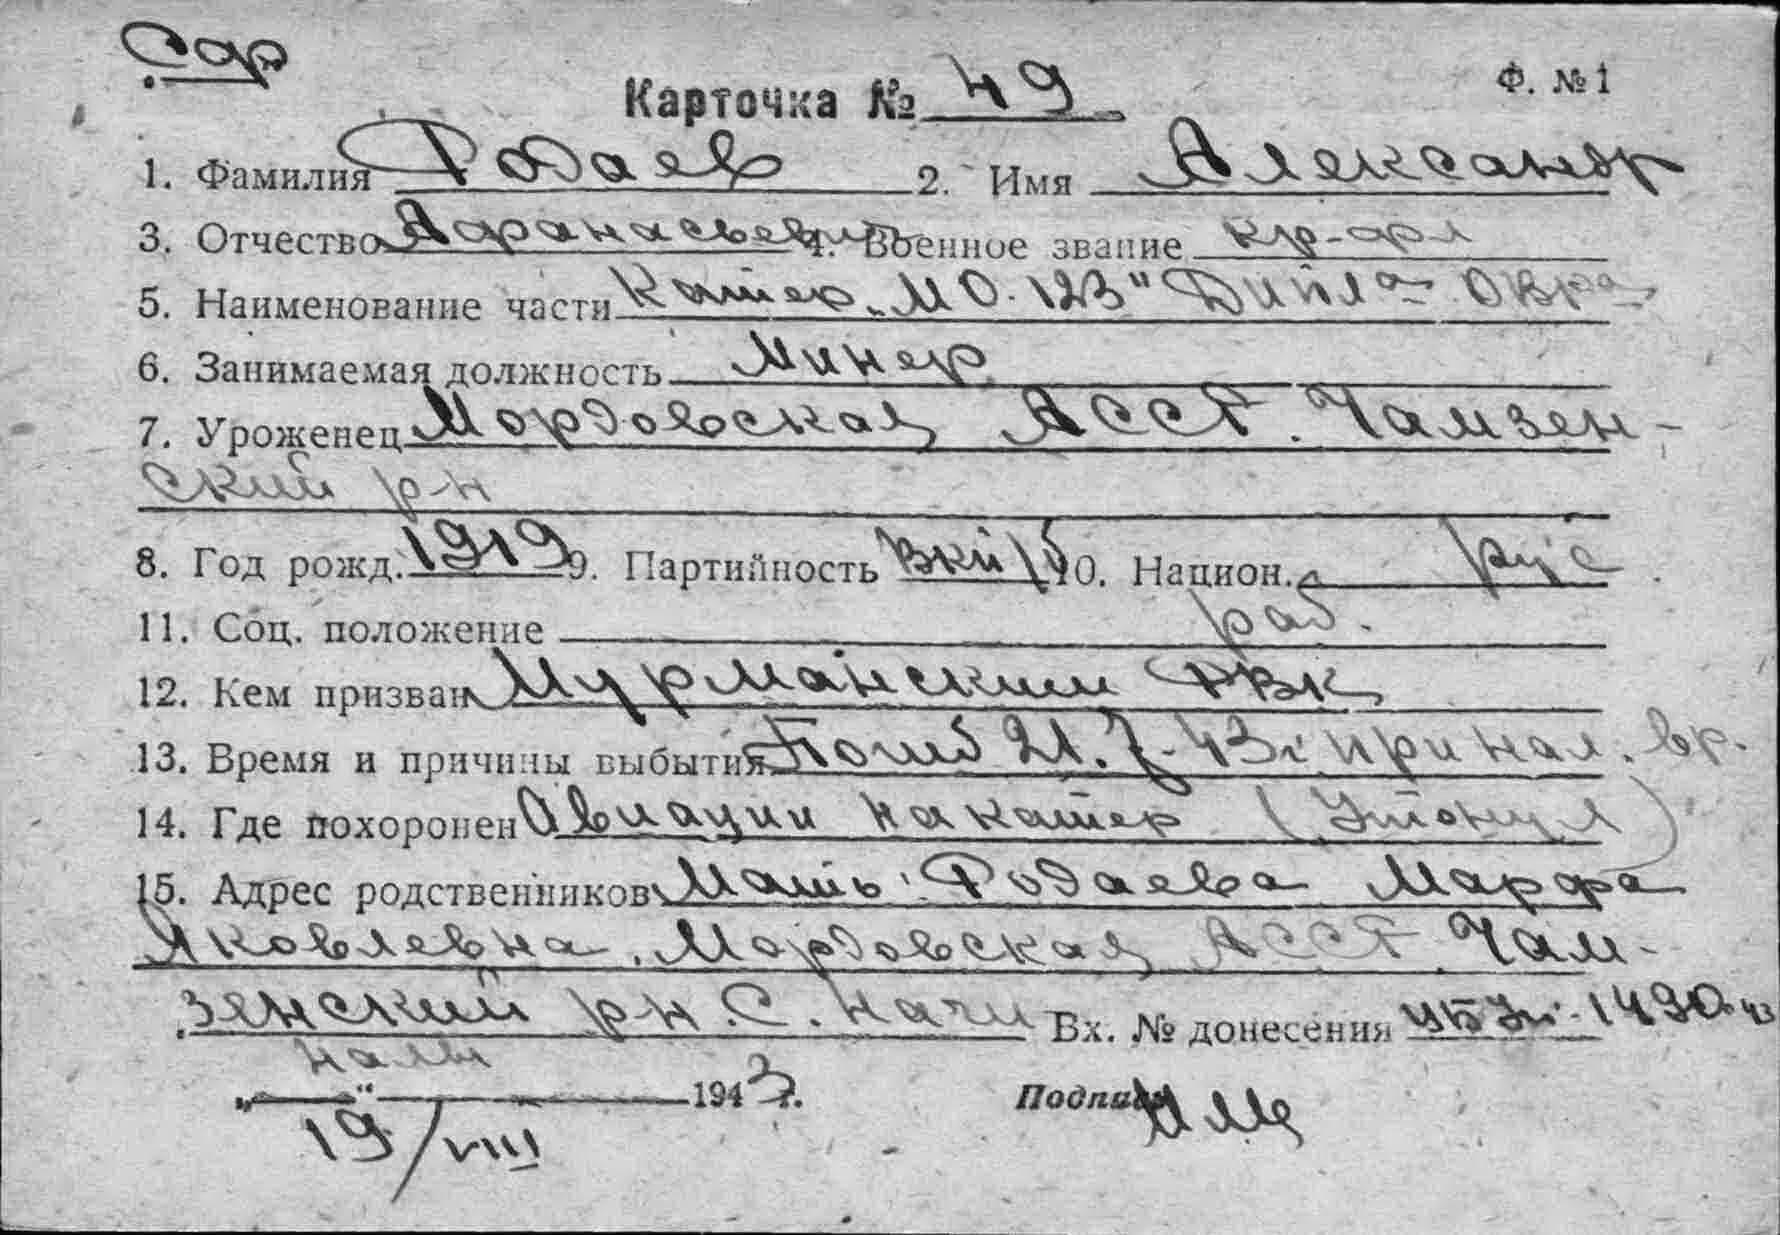 Сар
Карточка № 49 Ф. № 1
1. Фамилия Родаев 2. Имя Александр
3. Отчество Афанасьевич 4. Военное звание кр-фл
5. Наименование части Катер „МО-123" ОВРа
6. Занимаемая должность Минер
7. Уроженец Мордовская АССР. Чамзен-
ский р-н
8. Год рожд. 1919 9. Партийность ВКП/б 10. Национ. рус
11. Соц. положение раб.
12. Кем призван Мурманским РВК
13. Время и причины выбытия Погиб 21.7-43г при нал. вр.
14. Где похоронен Авиации на катер (Утонул)
15. Адрес родственников Мать: Родаева Марфа
Яковлевна. Мордовская АССР Чам-
зенский р-н. С. Начи
налы Вх. № донесения 1490-43
„ " 1943г. Подпись
19/VIII